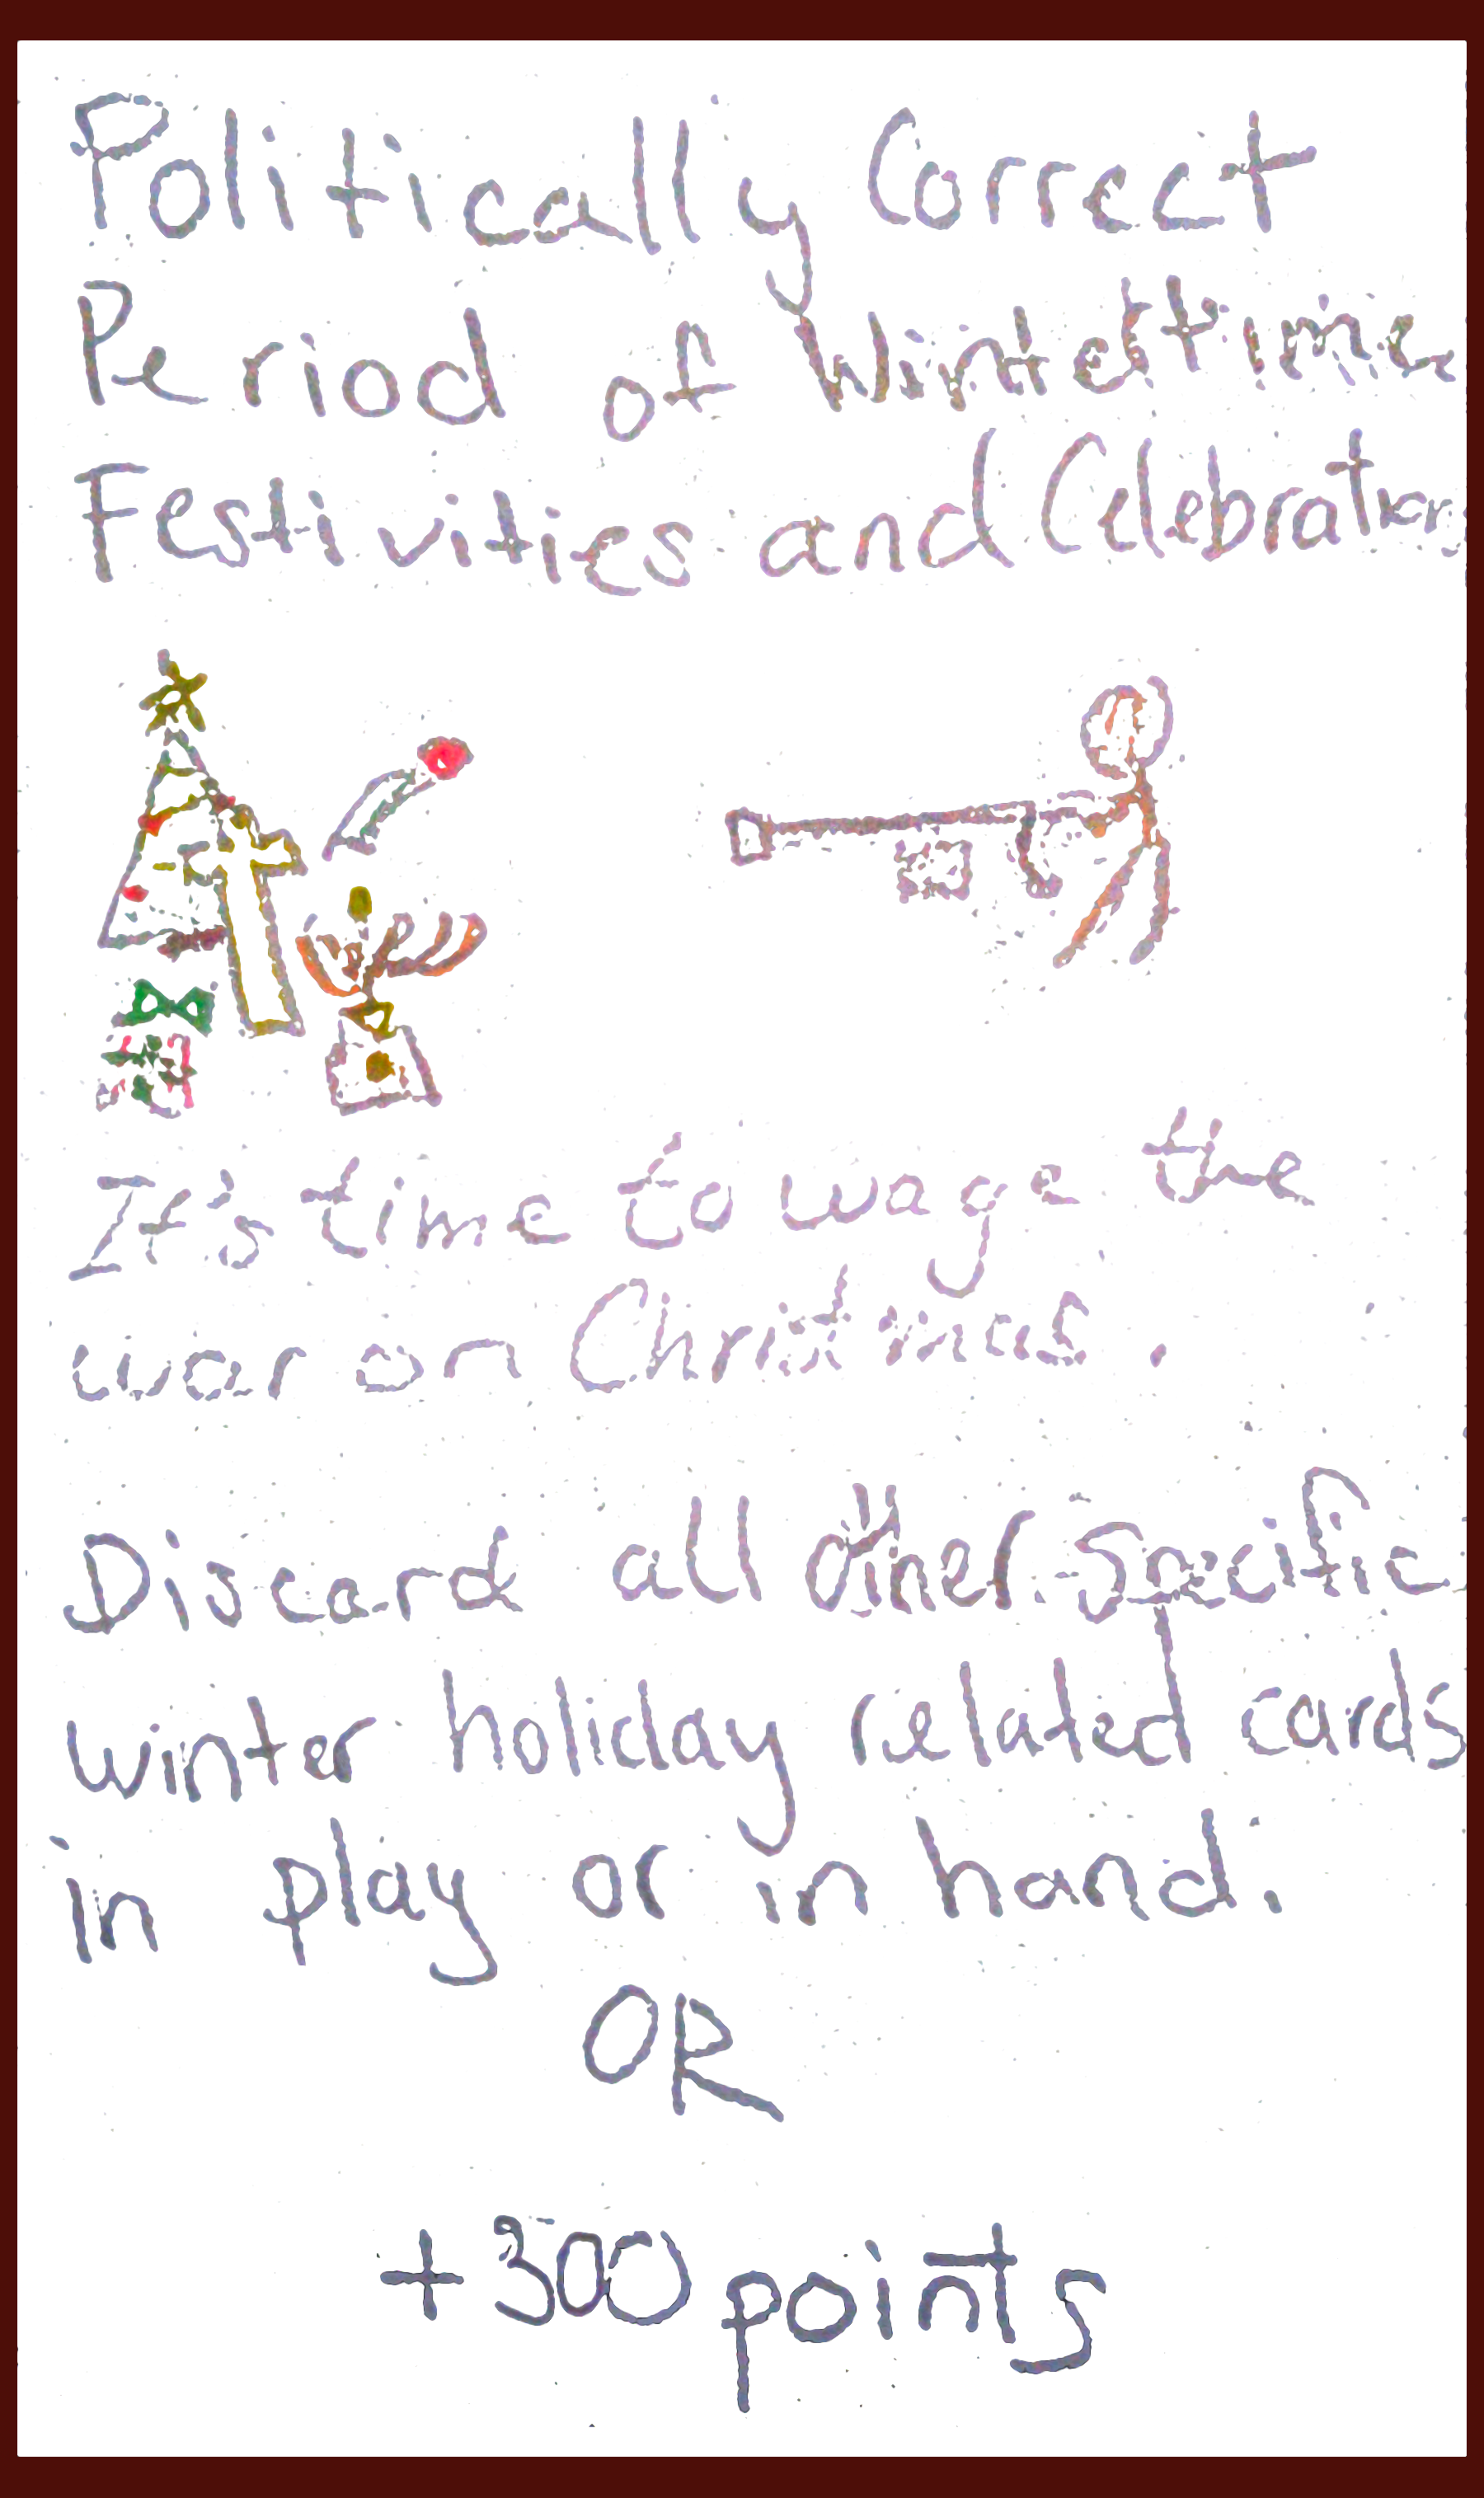 Politically Correct
Period of Wintertime
Festivities and Celebration
It's time to wage the
war on Christmas.
Discard all other specific
winter holiday related cards
in play or in hand.
OR
+300 points